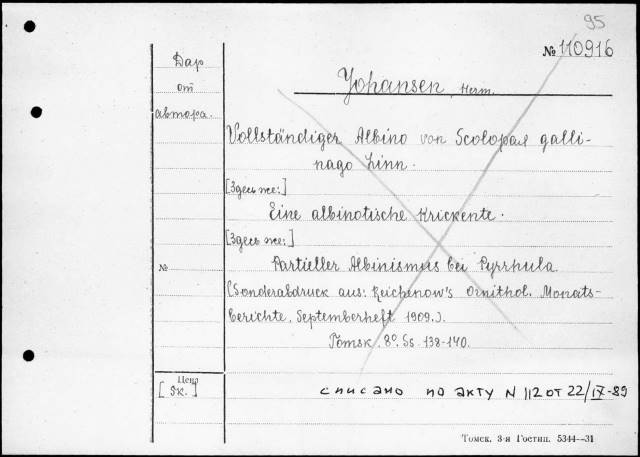 95
№ 110916
Дар
от
автора.
Yohansen, Herm.
Vollständiger Albino von Scolopax galli-
nago Linn.
[Здесь же:]
Eine albinotische Krickente.
[Здесь же:]
№
Partieller Albinismus bei Pyrrhula
(Sonderabdruck aus: Reichenow's Ornithol. Monats-
berichte, Septemberheft 1909.).
Tomsk. 8º. Ss. 138-140.
Цена
[5к.]
списано по акту N 112 от 22/IX-89
Томск. 3-я Гостип. 5344—31